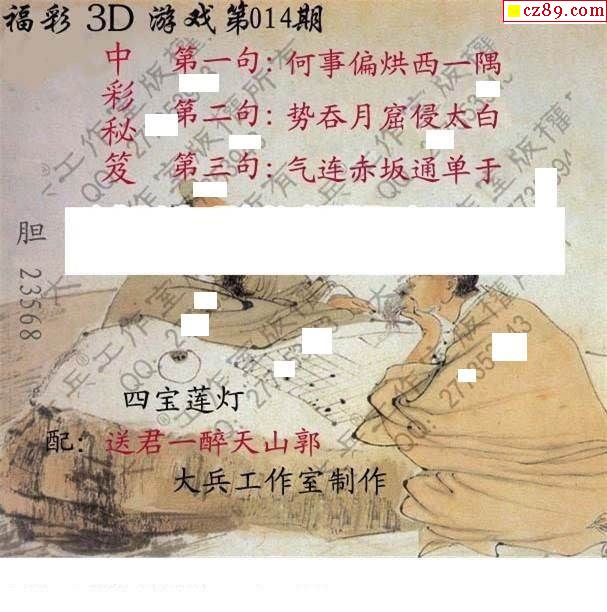 cz89.com
福彩 3D 游戏第014期
中彩秘笈
第一句：何事偏烘西一隅
第二句：势吞月窟侵太白
第三句：气连赤坂通单于
胆 23568
四宝莲灯
配：送君一醉天山郭
大兵工作室制作